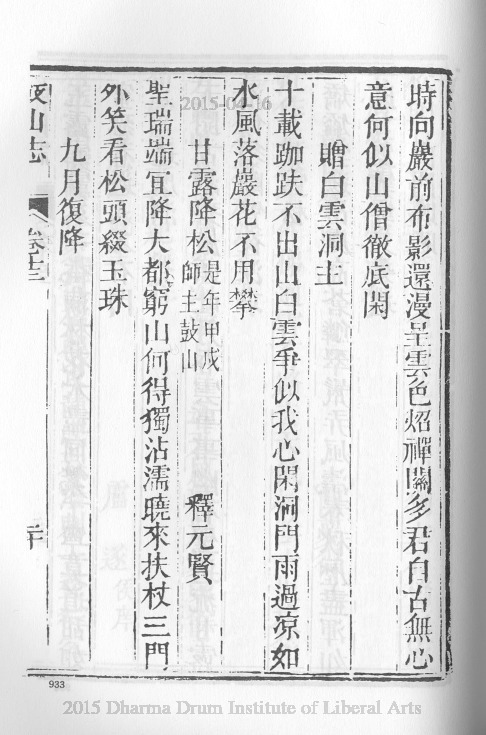 時向巖前布影還漫呈雲色炤禪關多君自古無心
意何似山僧徹底閑
贈白雲洞主
十載跏趺不出山白雲爭似我心閑洞門雨過凉如
水風落巖花不用攀
甘露降松 是年甲戌 釋元賢
師主鼓山
聖瑞端宜降大都窮山何得獨沾濡曉來扶杖三門
外笑看松頭綴玉珠
九月復降
鼓山志 卷十三 二十
933
2015-04-16
2015 Dharma Drum Institute of Liberal Arts